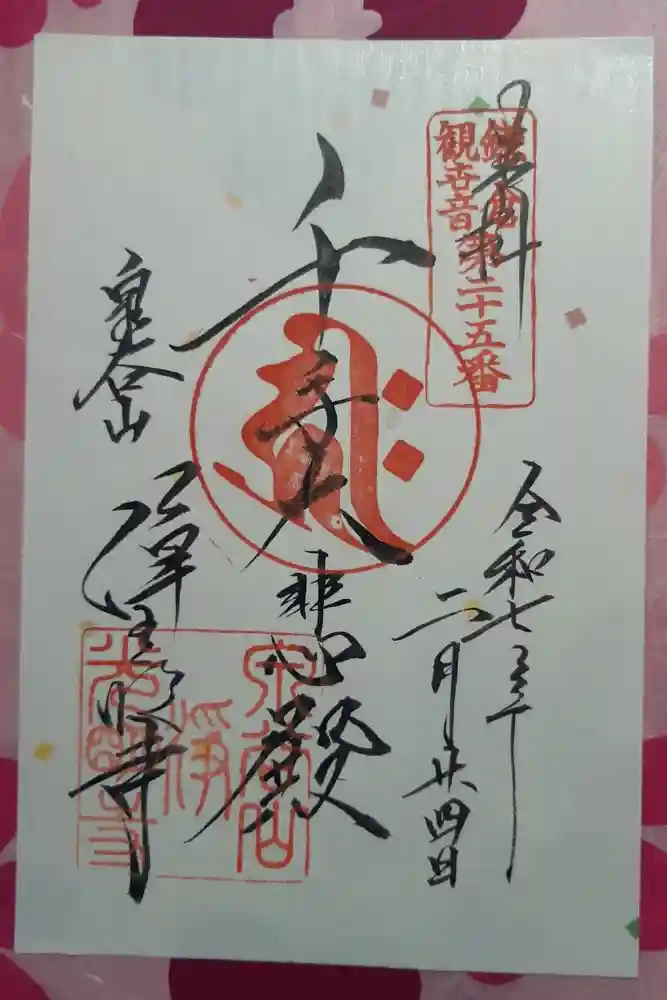 奉拝
鎌倉
観世音第二十五番
令和七年
二月廿四日
千手大悲殿
泉谷山
浄光明寺
泉谷山
浄
光明寺